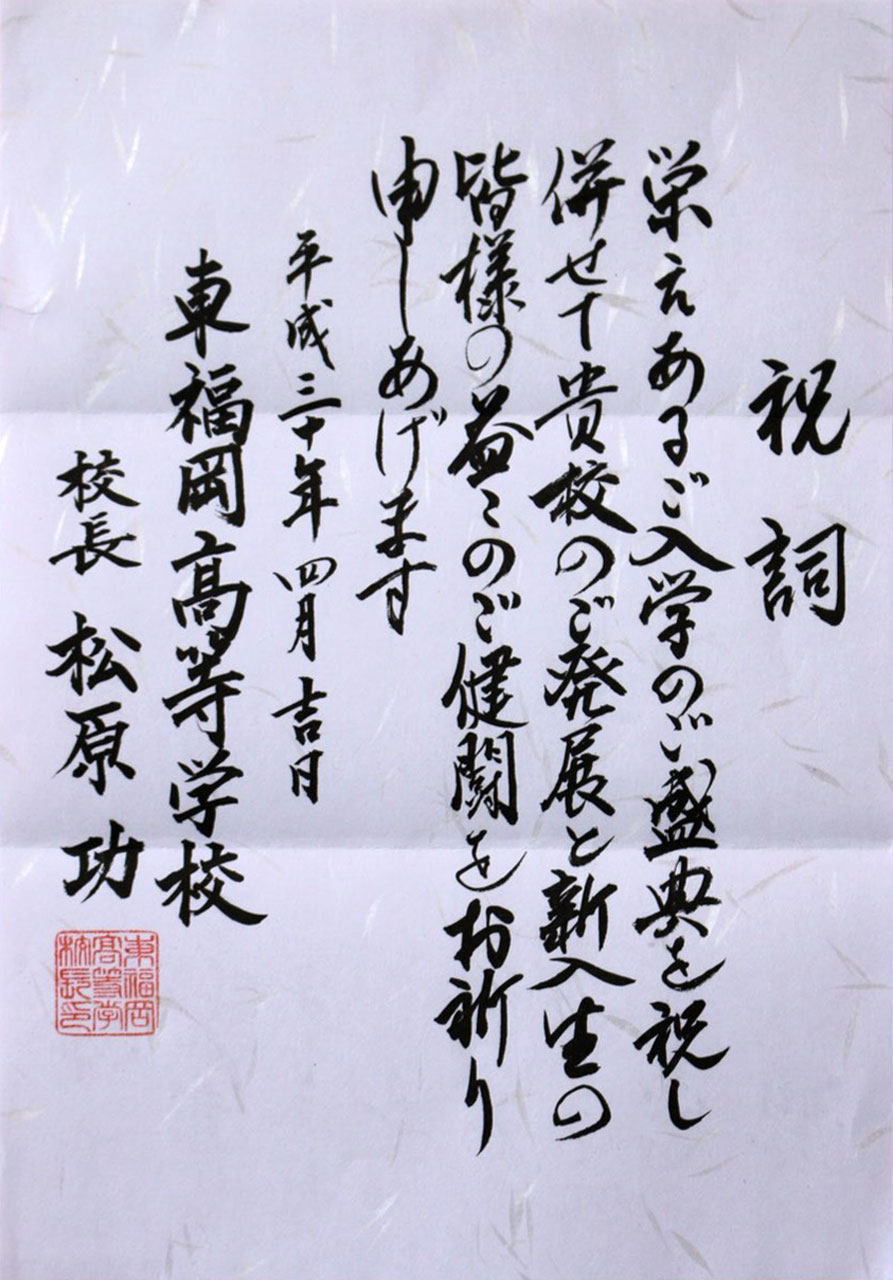 祝詞
栄えあるご入学のご盛典を祝し
併せて貴校のご発展と新入生の
皆様の益々のご健闘をお祈り
申しあげます
平成三十年四月吉日
東福岡高等学校
校長 松原 功
東福岡
高等学
校長印